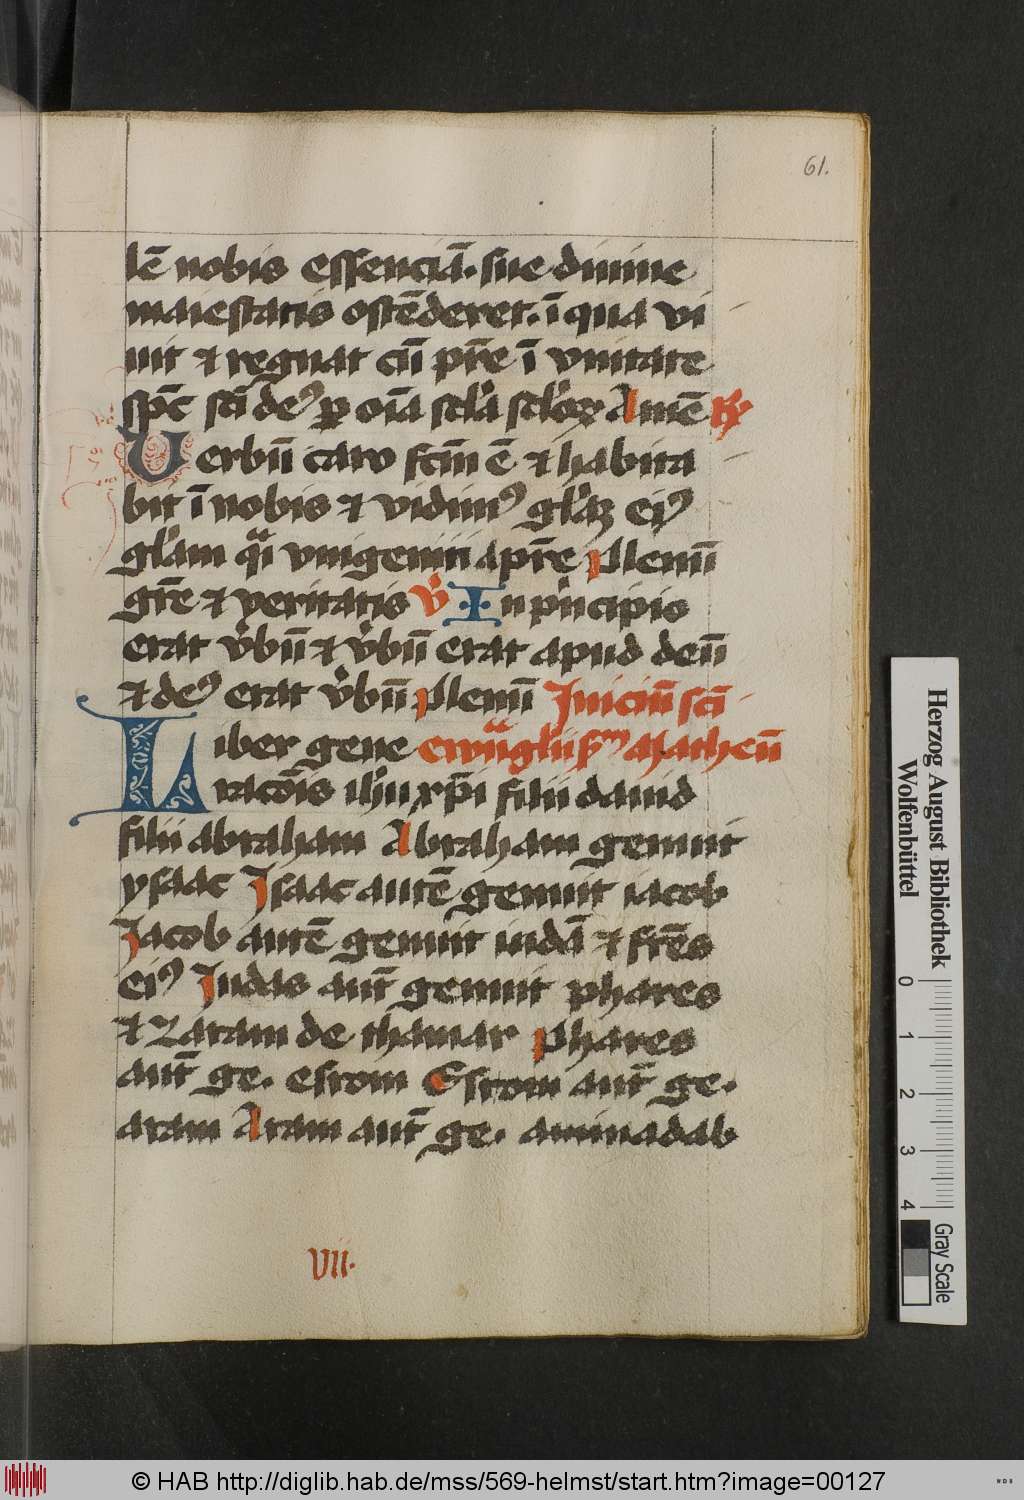 61.
lē nobis essenciā. sue diuine
maiestatis ostēderet. ī qua vi
uit ⁊ regnat cū pr̄e ī vnitate
sp̄c sc̄i deꝰ ꝑ oīa scl̄a scl̄oꝝ Amē ℟
Verbū caro fc̄m ē ⁊ habita
bit ī nobis ⁊ vidimꝰ gl̄aꝫ eiꝰ
gl̄am qᷓi vnigeniti a pr̄e Plenū
gr̄e ⁊ veritatis v̄ In pⁱncipio
erat v̓bū ⁊ v̓bū erat apud deū
⁊ deꝰ erat v̓bū Plenū Iniciū sc̄i
Liber gene ewāglii scd̄m Matheū
racōis ih̄u xp̄i filii dauid
filii abraham Abraham genuit
ysaac Isaac autē genuit iacob
Jacob autē genuit iudā ⁊ fr̄es
eiꝰ Judas aut̄ genuit phares
⁊ zaram de thamar Phares
aut̄ ge. esrom Esrom aut̄ ge.
aram Aram aut̄ ge. aminadab
VII.
Herzog August Bibliothek
Wolfenbüttel
0 1 2 3 4
Gray Scale
© HAB http://diglib.hab.de/mss/569-helmst/start.htm?image=00127